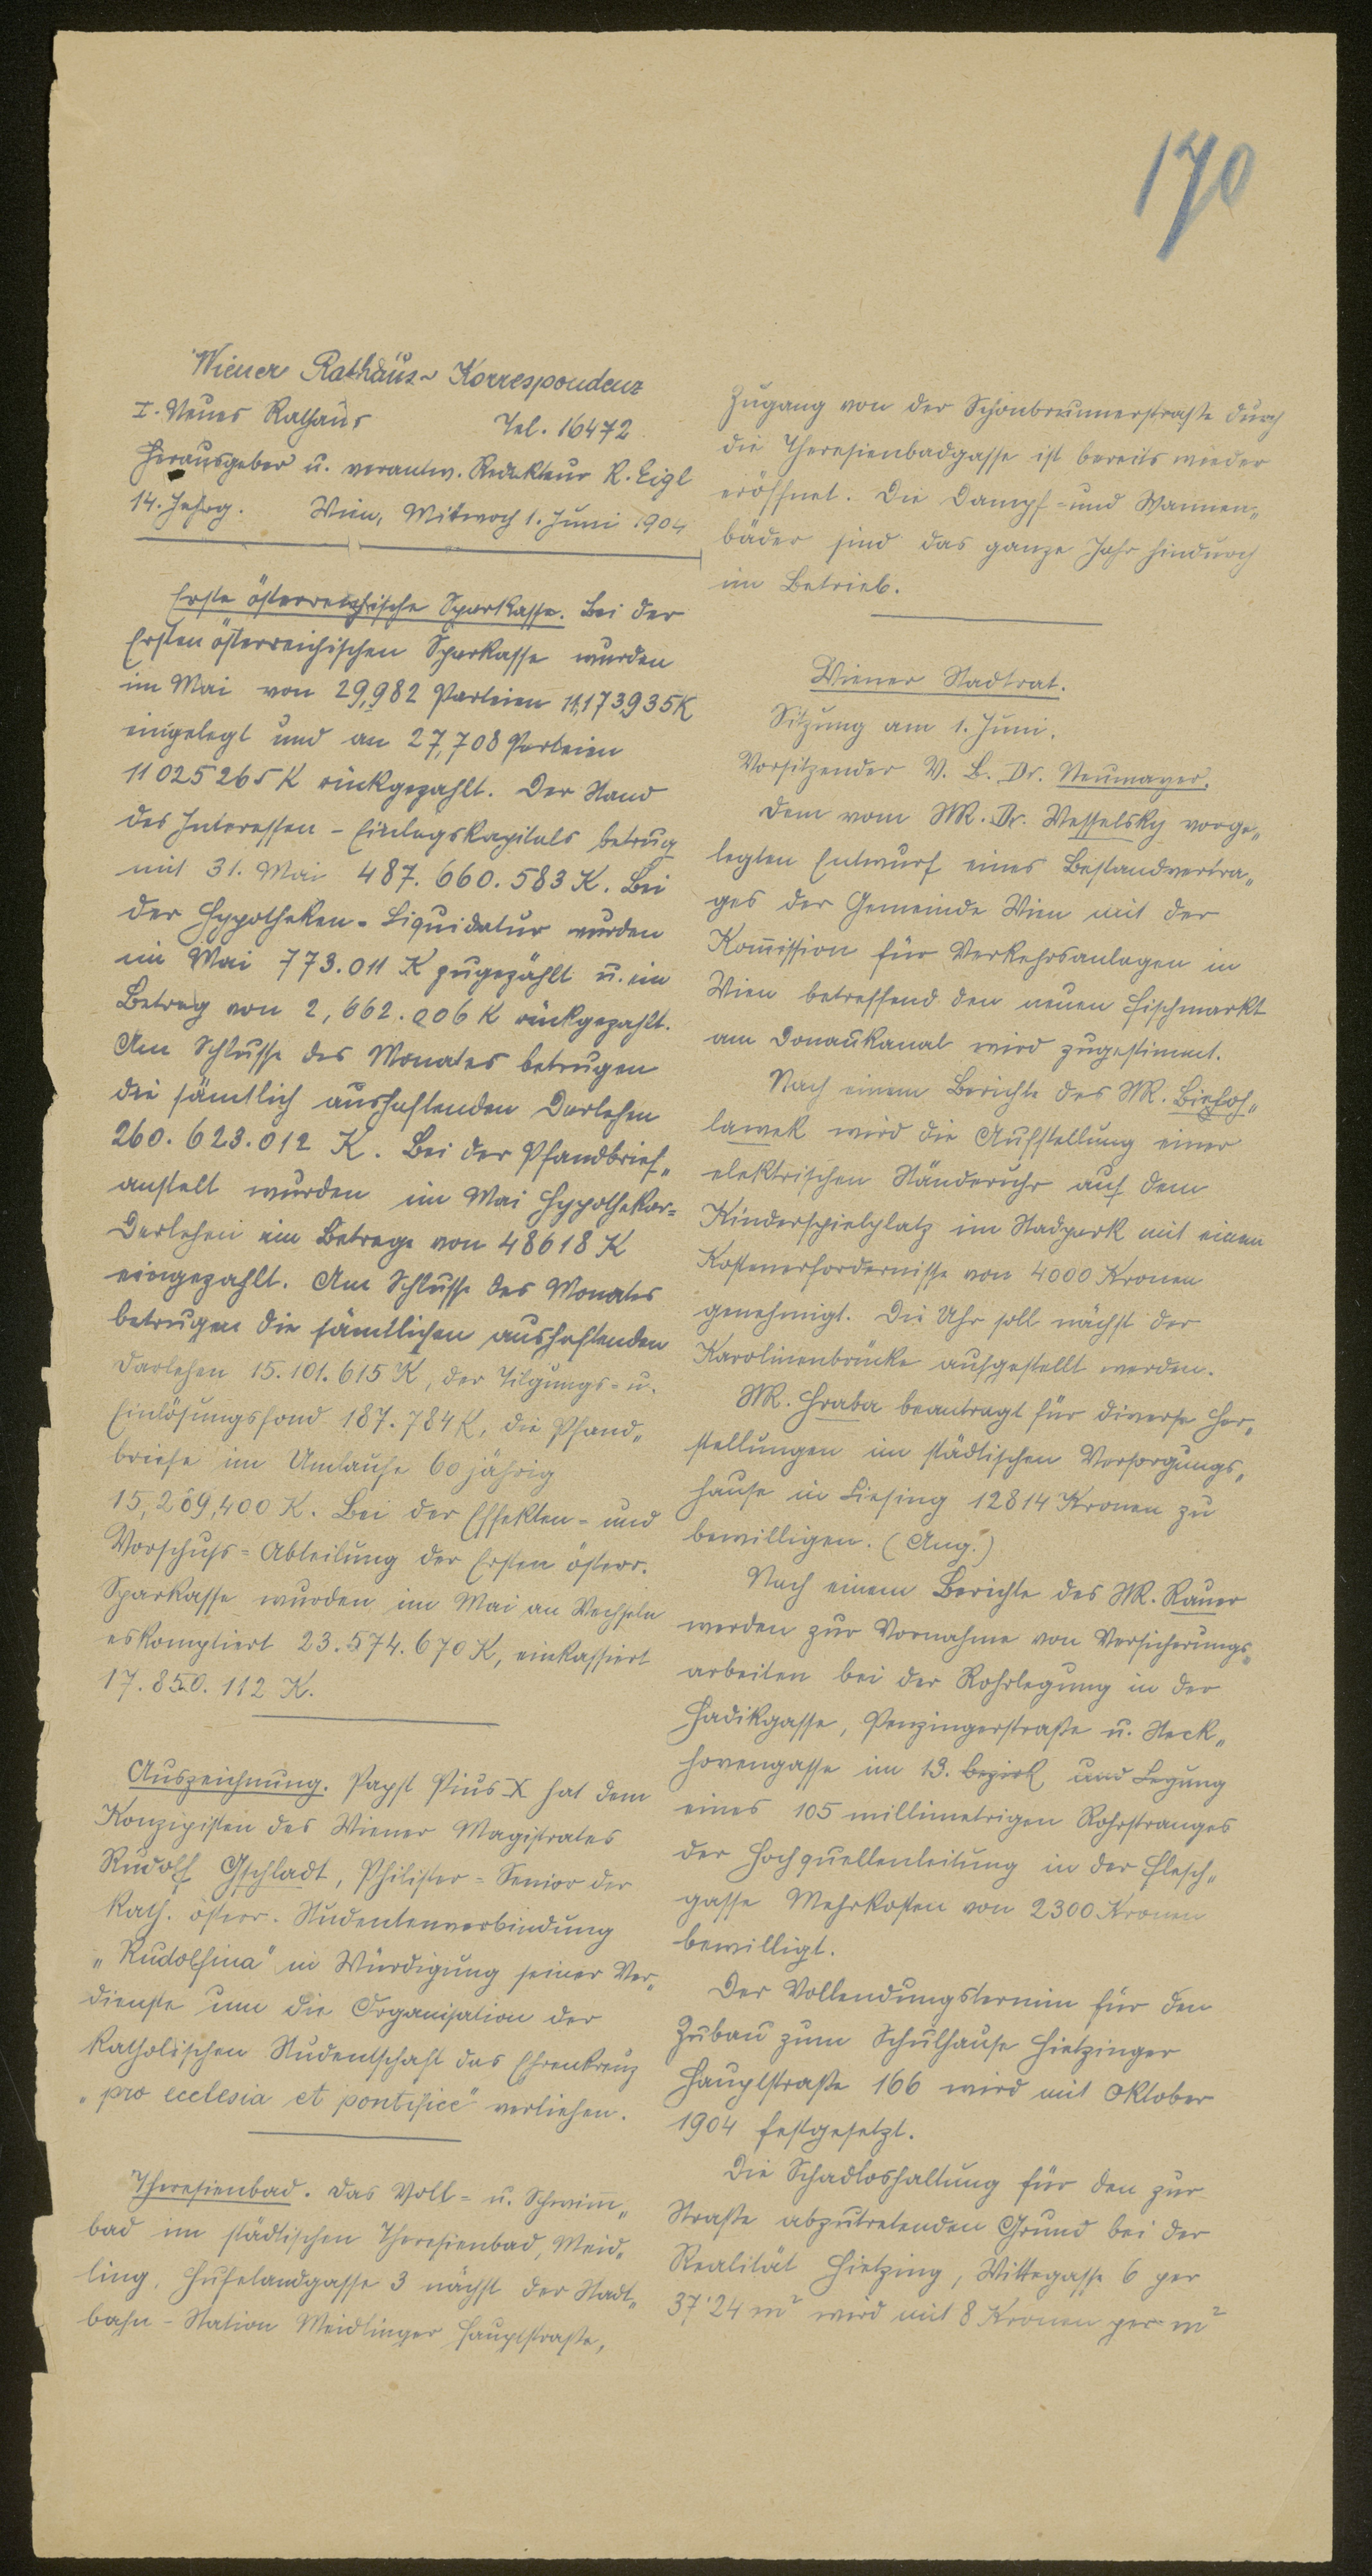 170
Wiener Rathaus-Korrespondenz
I. Neues Rathaus Tel. 16472
Herausgeber u. verantw. Redakteur R. Eigl
14. Jahrg. Wien, Mittwoch 1. Juni 1904
Erste österreichische Sparkasse. Bei der
Ersten österreichischen Sparkasse wurden
im Mai von 29,982 Parteien 11,173935K
eingelegt und an 27,708 Parteien
11025265 K rückgezahlt. Der Stand
des Interessen-Einlagskapitals betrug
mit 31. Mai 487.660.583 K. Bei
der Hypotheken-Liquidatur wurden
im Mai 773.011 K zugezählt u. ein
Betrag von 2,662.006 K rückgezahlt.
Am Schlusse des Monates betrugen
die sämtlich aushaftenden Darlehen
260.623.012 K. Bei der Pfandbrief„
anstalt wurden im Mai Hypothekar=
Darlehen im Betrage von 48618 K
eingezahlt. Am Schlusse des Monates
betrugen die sämtlichen aushaftenden
Darlehen 15.101.615 K, der Tilgungs- u.
Einlösungsfond 187.784 K, die Pfand„
briefe im Umlaufe 60 jährig
15,269,400 K. Bei der Effekten- und
Vorschuß-Abteilung der Ersten österr.
Sparkasse wurden im Mai an Wechseln
eskomptiert 23.574.670 K, einkassiert
17.850.112 K.
Auszeichnung. Papst Pius X hat dem
Konzipisten des Wiener Magistrates
Rudolf Gschladt, Philister=Senior der
kath. österr. Studentenverbindung
„Rudolfina" in Würdigung seiner Ver„
dienste um die Organisation der
katholischen Studentschaft das Ehrenkreuz
„pro ecclesia et pontifice" verliehen.
Theresienbad. Das Voll- u. Schwim̅„
bad im städtischen Theresienbad, Meid„
ling, Hufelandgasse 3 nächst der Stadt„
bahn-Station Meidlinger Hauptstraße,
Zugang von der Schönbrunnerstraße durch
die Theresienbadgasse ist bereits wieder
eröffnet. Die Dampf- und Wannen„
bäder sind das ganze Jahr hindurch
im Betrieb.
Wiener Stadtrat.
Sitzung am 1. Juni.
Vorsitzender V. B. Dr. Neumayer.
Dem vom StR. Dr. Wesselsky vorge„
legten Entwurf eines Bestandvertra„
ges der Gemeinde Wien mit der
Kom̅ission für Verkehrsanlagen in
Wien betreffend den neuen Fischmarkt
am Donaukanal wird zugestimmt.
Nach einem Berichte des StR. Bieloh„
lawek wird die Aufstellung einer
elektrischen Ständeruhr auf dem
Kinderspielplatz im Stadtpark mit einem
Kostenerfordernisse von 4000 Kronen
genehmigt. Die Uhr soll nächst der
Karolinenbrücke aufgestellt werden.
StR. Hraba beantragt für diverse Her„
stellungen im städtischen Versorgungs„
hause in Liesing 12814 Kronen zu
bewilligen. (Ang.)
Nach einem Berichte des StR. Rauer
werden zur Vornahme von Versicherungs„
arbeiten bei der Rohrlegung in der
Hadikgasse, Penzingerstraße u. Steck„
hovengasse im 13. Bezirk und Legung
eines 105 millimetrigen Rohrstranges
der Hochquellenleitung in der Flesch„
gasse Mehrkosten von 2300 Kronen
bewilligt.
Der Vollendungstermin für den
Zubau zum Schulhause Hietzinger
Hauptstraße 166 wird mit Oktober
1904 festgesetzt.
Die Schadloshaltung für den zur
Straße abzutretenden Grund bei der
Realität Hietzing, Wittegasse 6 per
37·24 m² wird mit 8 Kronen per m²